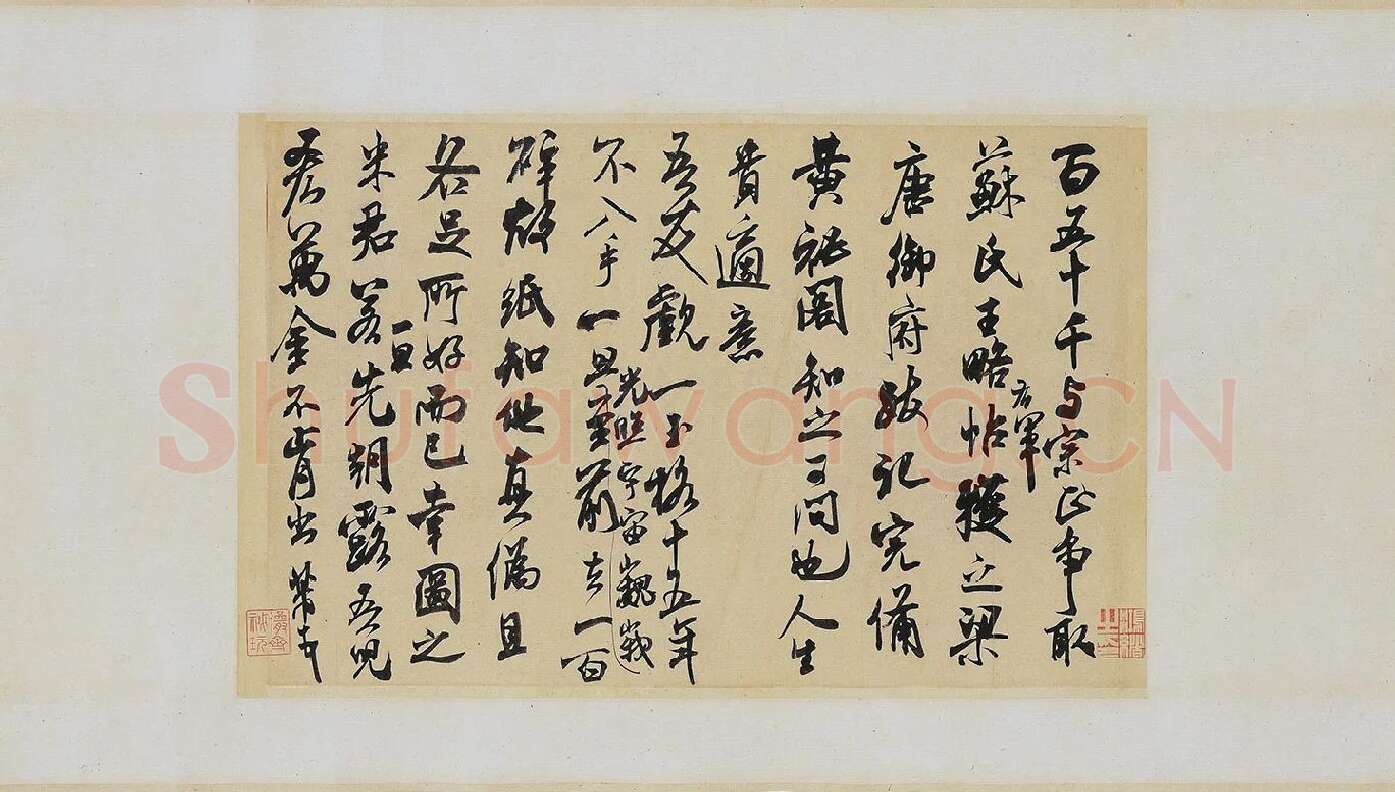 百五十千与宗正争取
蘇氏王略帖獲之梁
右軍
唐御府跋記完備
黄秘閣知之可問也人生
貴適意
吾友覷一玉格十五年
光照宇宙巍峩
不入手一旦至前去一百
碎故紙知他真偽且
各足所好而已幸圖之
米君若一旦先朝露吾兒
吝萬金不肯出芾頓首
Shufawang.CN